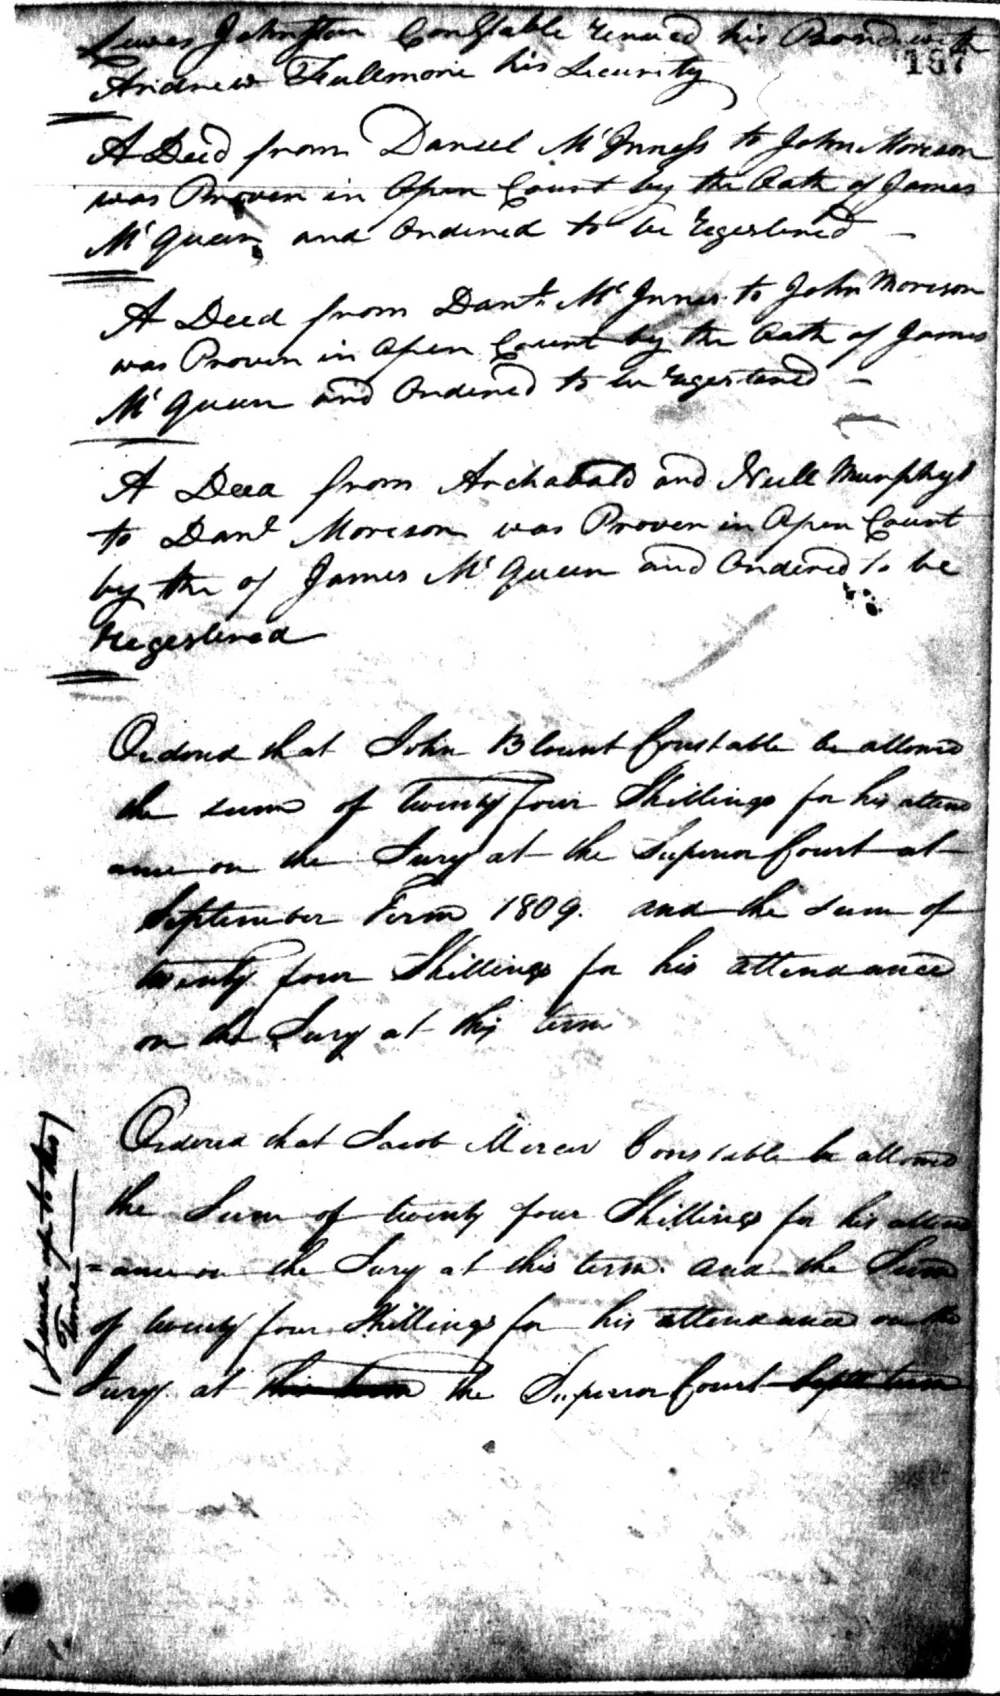 Luwes Johnston Constable renued his Bond with
157
Andrew Fullmore his Security
A Deed from Daniel Mc Inness to John Morison
was Proven in Open Court by the Oath of James
Mc Queen and Ordered to be Regestered
A Deed from Danl. Mc Innes to John Morison
was Proven in Open Court by the Oath of James
Mc Queen and Ordered to be Regestered
A Deed from Archabald and Neill Murphy
to Danl Morison was Proven in Open Court
by the of James Mc Queen and Ordered to be
Regestered
Ordered that John Blount Constable be allowed
the sum of Twenty four Shillings for his atten
ance on the Jury at the Superior Court at
September Term 1809. and the sum of
twenty four Shillings for his attendance
on the Jury at this term
Ordered that Jacob Mercer Constable be allowed
the Sum of twenty four Shillings for his atten
=ance on the Jury at this term. and the Sum
of twenty four Shillings for his attendance on the
Jury at this term the Superior Court Septr term
up to this
time